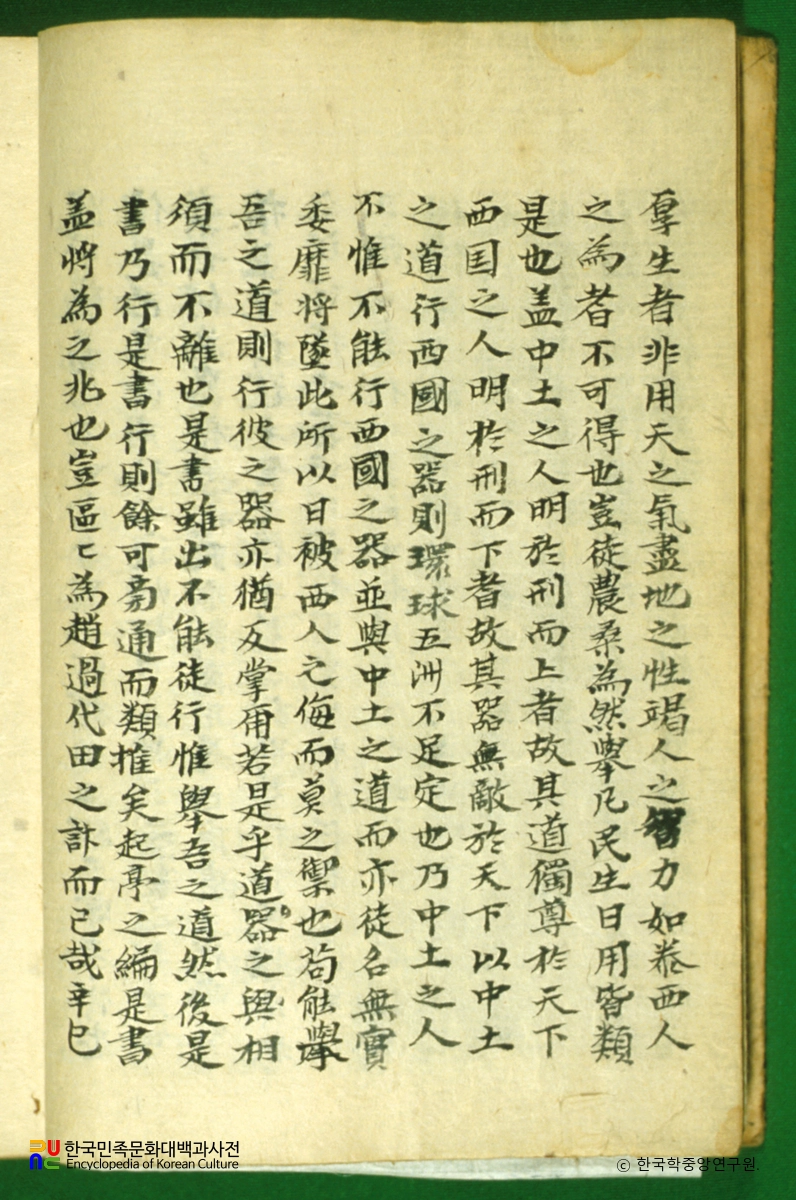 厚生者非用天之氣盡地之性竭人之智力如泰西人
之為者不可得也豈徒農桑為然舉凡民生日用皆類
是也盖中土之人明於刑而上者故其道獨尊於天下
西国之人明於刑而下者故其器無敵於天下以中土
之道行西國之器則環球五洲不足定也乃中土之人
不惟不能行西國之器並與中土之道而亦徒名無實
委靡將墜此所以日被西人之侮而莫之禦也苟能舉
吾之道則行彼之器亦猶反掌甭若是乎道器之與相
須而不離也是書雖出不能徒行惟舉吾之道然後是
書乃行是書行則餘可旁通而類推矣起亭之編是書
盖將為之兆也豈區〻為趙過代田之計而已哉辛巳
한국민족문화대백과사전
Encyclopedia of Korean Culture
ⓒ 한국학중앙연구원.